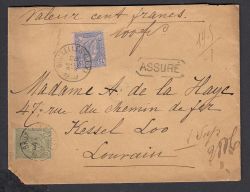 Valeur cent francs.
100 frs
ASSURÉ
Madame A de la Haye
47, rue du chemin de fer
Kessel Loo
Louvain